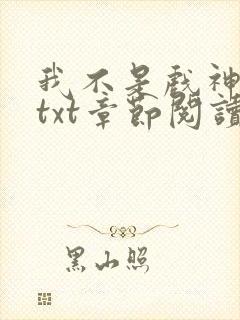 我不是戲神
txt章節閱讀
黑山照